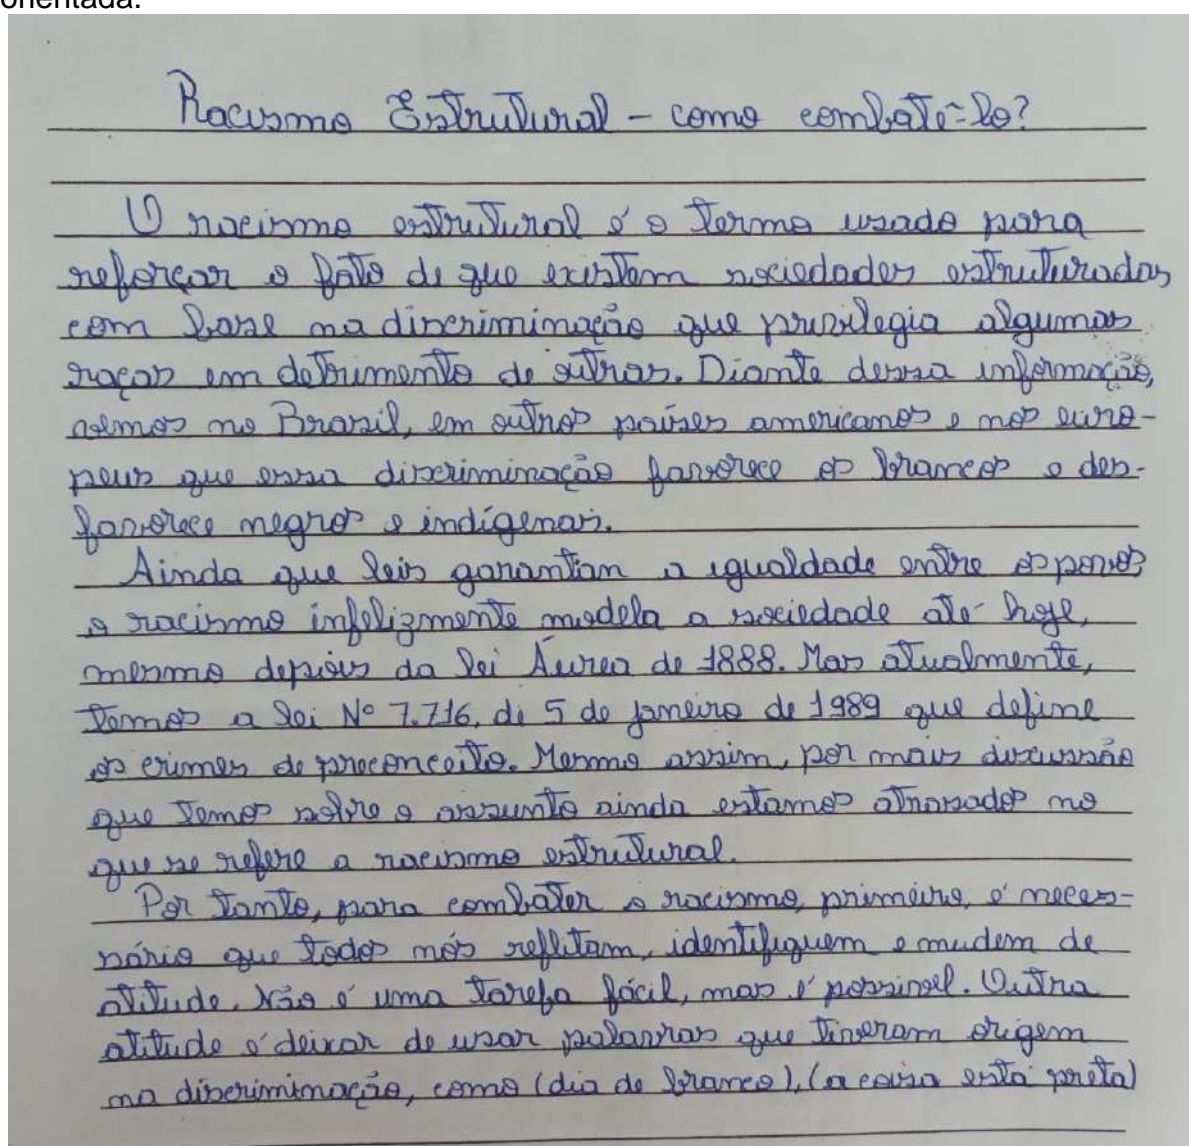 orientada.
Racismo Estrutural - como combatê-lo?
O racismo estrutural é o termo usado para
reforçar o fato de que existem sociedades estruturadas
com base na discriminação que privilegia algumas
raças em detrimento de outras. Diante dessa informação,
vemos no Brasil, em outros países americanos e nos euro-
peus que essa discriminação favorece os brancos e des-
favorece negros e indígenas.
Ainda que leis garantam a igualdade entre os povos
o racismo infelizmente modela a sociedade até hoje,
mesmo depois da lei Áurea de 1888. Mas atualmente,
temos a lei Nº 7.716, de 5 de janeiro de 1989 que define
os crimes de preconceito. Mesmo assim, por mais discussão
que temos sobre o assunto ainda estamos atrasados no
que se refere a racismo estrutural.
Por tanto, para combater o racismo, primeiro, é neces-
sário que todos nós reflitam, identifiquem e mudem de
atitude. Não é uma tarefa fácil, mas é possível. Outra
atitude é deixar de usar palavras que tiveram origem
na discriminação, como (dia de branco), (a coisa está preta)